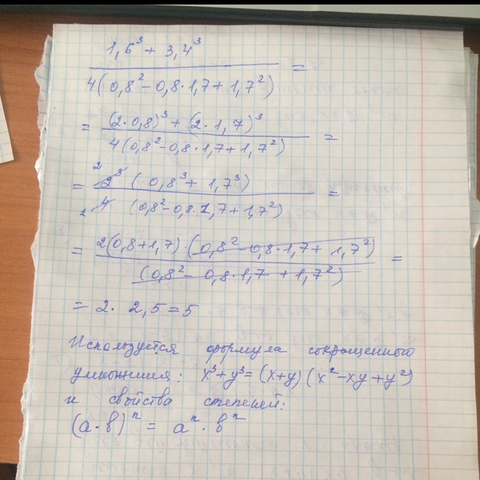 1,6³ + 3,4³ / 4(0,8² - 0,8·1,7 + 1,7²) =
= (2·0,8)³ + (2·1,7)³ / 4(0,8² - 0,8·1,7 + 1,7²) =
= 2 2³ (0,8³ + 1,7³) / 2 4 (0,8² - 0,8·1,7 + 1,7²) =
= 2(0,8 + 1,7) (0,8² - 0,8·1,7 + 1,7²) / (0,8² - 0,8·1,7 + 1,7²) =
= 2 · 2,5 = 5
Используется формула сокращенного
умножения: x³ + y³ = (x+y)(x² - xy + y²)
и свойства степеней:
(a·b)ⁿ = aⁿ · bⁿ